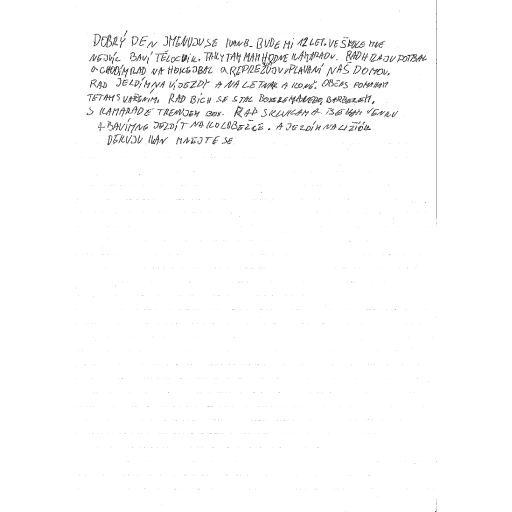 DOBRÝ DEN JMENUJU SE IVAN B. BUDE MI 12 LET. VE ŠKOLE MNE
NEJVÍC BAVÍ TĚLOCVIK. TAKY TAM MAM HODNE KAMARADU. RAD HRAJU FOTBAL
A CHODÍM RAD NA HOKEJBAL A REPREZUJU V PLAVANÍ NÁŠ DOMOV.
RAD JEZDÍM NA VÝJEZDY A NA LETNAK A KONĚ. OBČAS POMAHAM
TETAM S VAŘENIM. RAD BICH SE STAL BOXEREM BARBEREM.
S KAMARADE TRENUJEM BOX. RAD S KLUKAMA BEHAM VENKU
A BAVÍ MNE JEZDÍT NA KOLOBEŽCE. A JEZDÍM NA
DEKUJU IVAN MNEJTE SE